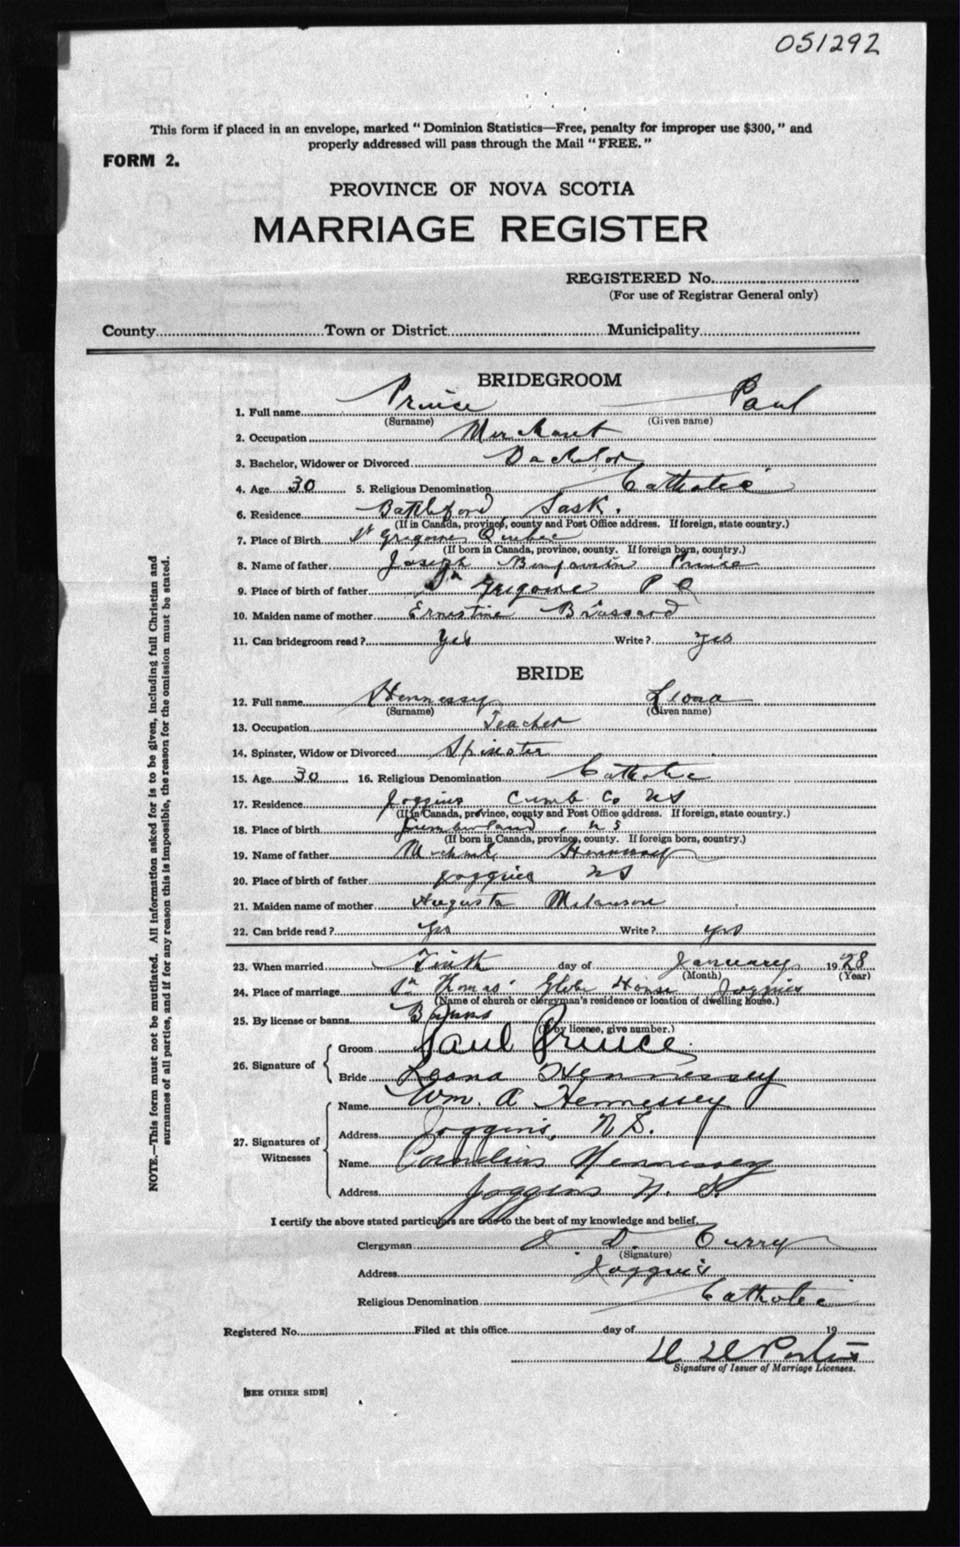 051292
This form if placed in an envelope, marked "Dominion Statistics—Free, penalty for improper use $300," and
properly addressed will pass through the Mail "FREE."
FORM 2.
PROVINCE OF NOVA SCOTIA
MARRIAGE REGISTER
REGISTERED No.
(For use of Registrar General only)
County Town or District Municipality
BRIDEGROOM
1. Full name Prince Paul
(Surname) (Given name)
2. Occupation Merchant
3. Bachelor, Widower or Divorced Bachelor
4. Age 30 5. Religious Denomination Catholic
6. Residence Battleford Sask.
(If in Canada, province, county and Post Office address. If foreign, state country.)
7. Place of Birth St Gregoire Quebec
(If born in Canada, province, county. If foreign born, country.)
8. Name of father Joseph Benjamin Prince
9. Place of birth of father St Gregoire P Q
10. Maiden name of mother Ernestine Brassard
11. Can bridegroom read? Yes Write? Yes
BRIDE
12. Full name Hennessy Leona
(Surname) (Given name)
13. Occupation Teacher
14. Spinster, Widow or Divorced Spinster
15. Age 30 16. Religious Denomination Catholic
17. Residence Joggins Cumb. Co NS
(If in Canada, province, county and Post Office address. If foreign, state country.)
18. Place of birth Cumberland, NS
(If born in Canada, province, county. If foreign born, country.)
19. Name of father Michael Hennessy
20. Place of birth of father Joggins NS
21. Maiden name of mother Augusta Melanson
22. Can bride read? Yes Write? yes
23. When married Tenth day of January 1928
(Month) (Year)
24. Place of marriage St Thomas' Glebe House Joggins
(Name of church or clergyman's residence or location of dwelling house.)
25. By license or banns Banns
(If by license, give number.)
26. Signature of Groom Paul Prince.
Bride Leona Hennessey
27. Signatures of Witnesses Name Wm. A Hennessey
Address Joggins, N.S.
Name Cornelius Hennessey
Address Joggins N. S.
I certify the above stated particulars are true to the best of my knowledge and belief.
Clergyman D. Curry
(Signature)
Address Joggins
Religious Denomination Catholic
Registered No. Filed at this office day of 19
Porter
Signature of Issuer of Marriage Licenses.
[SEE OTHER SIDE]
NOTE.—This form must not be mutilated. All information asked for is to be given, including full Christian and
surnames of all parties, and if for any reason this is impossible, the reason for the omission must be stated.